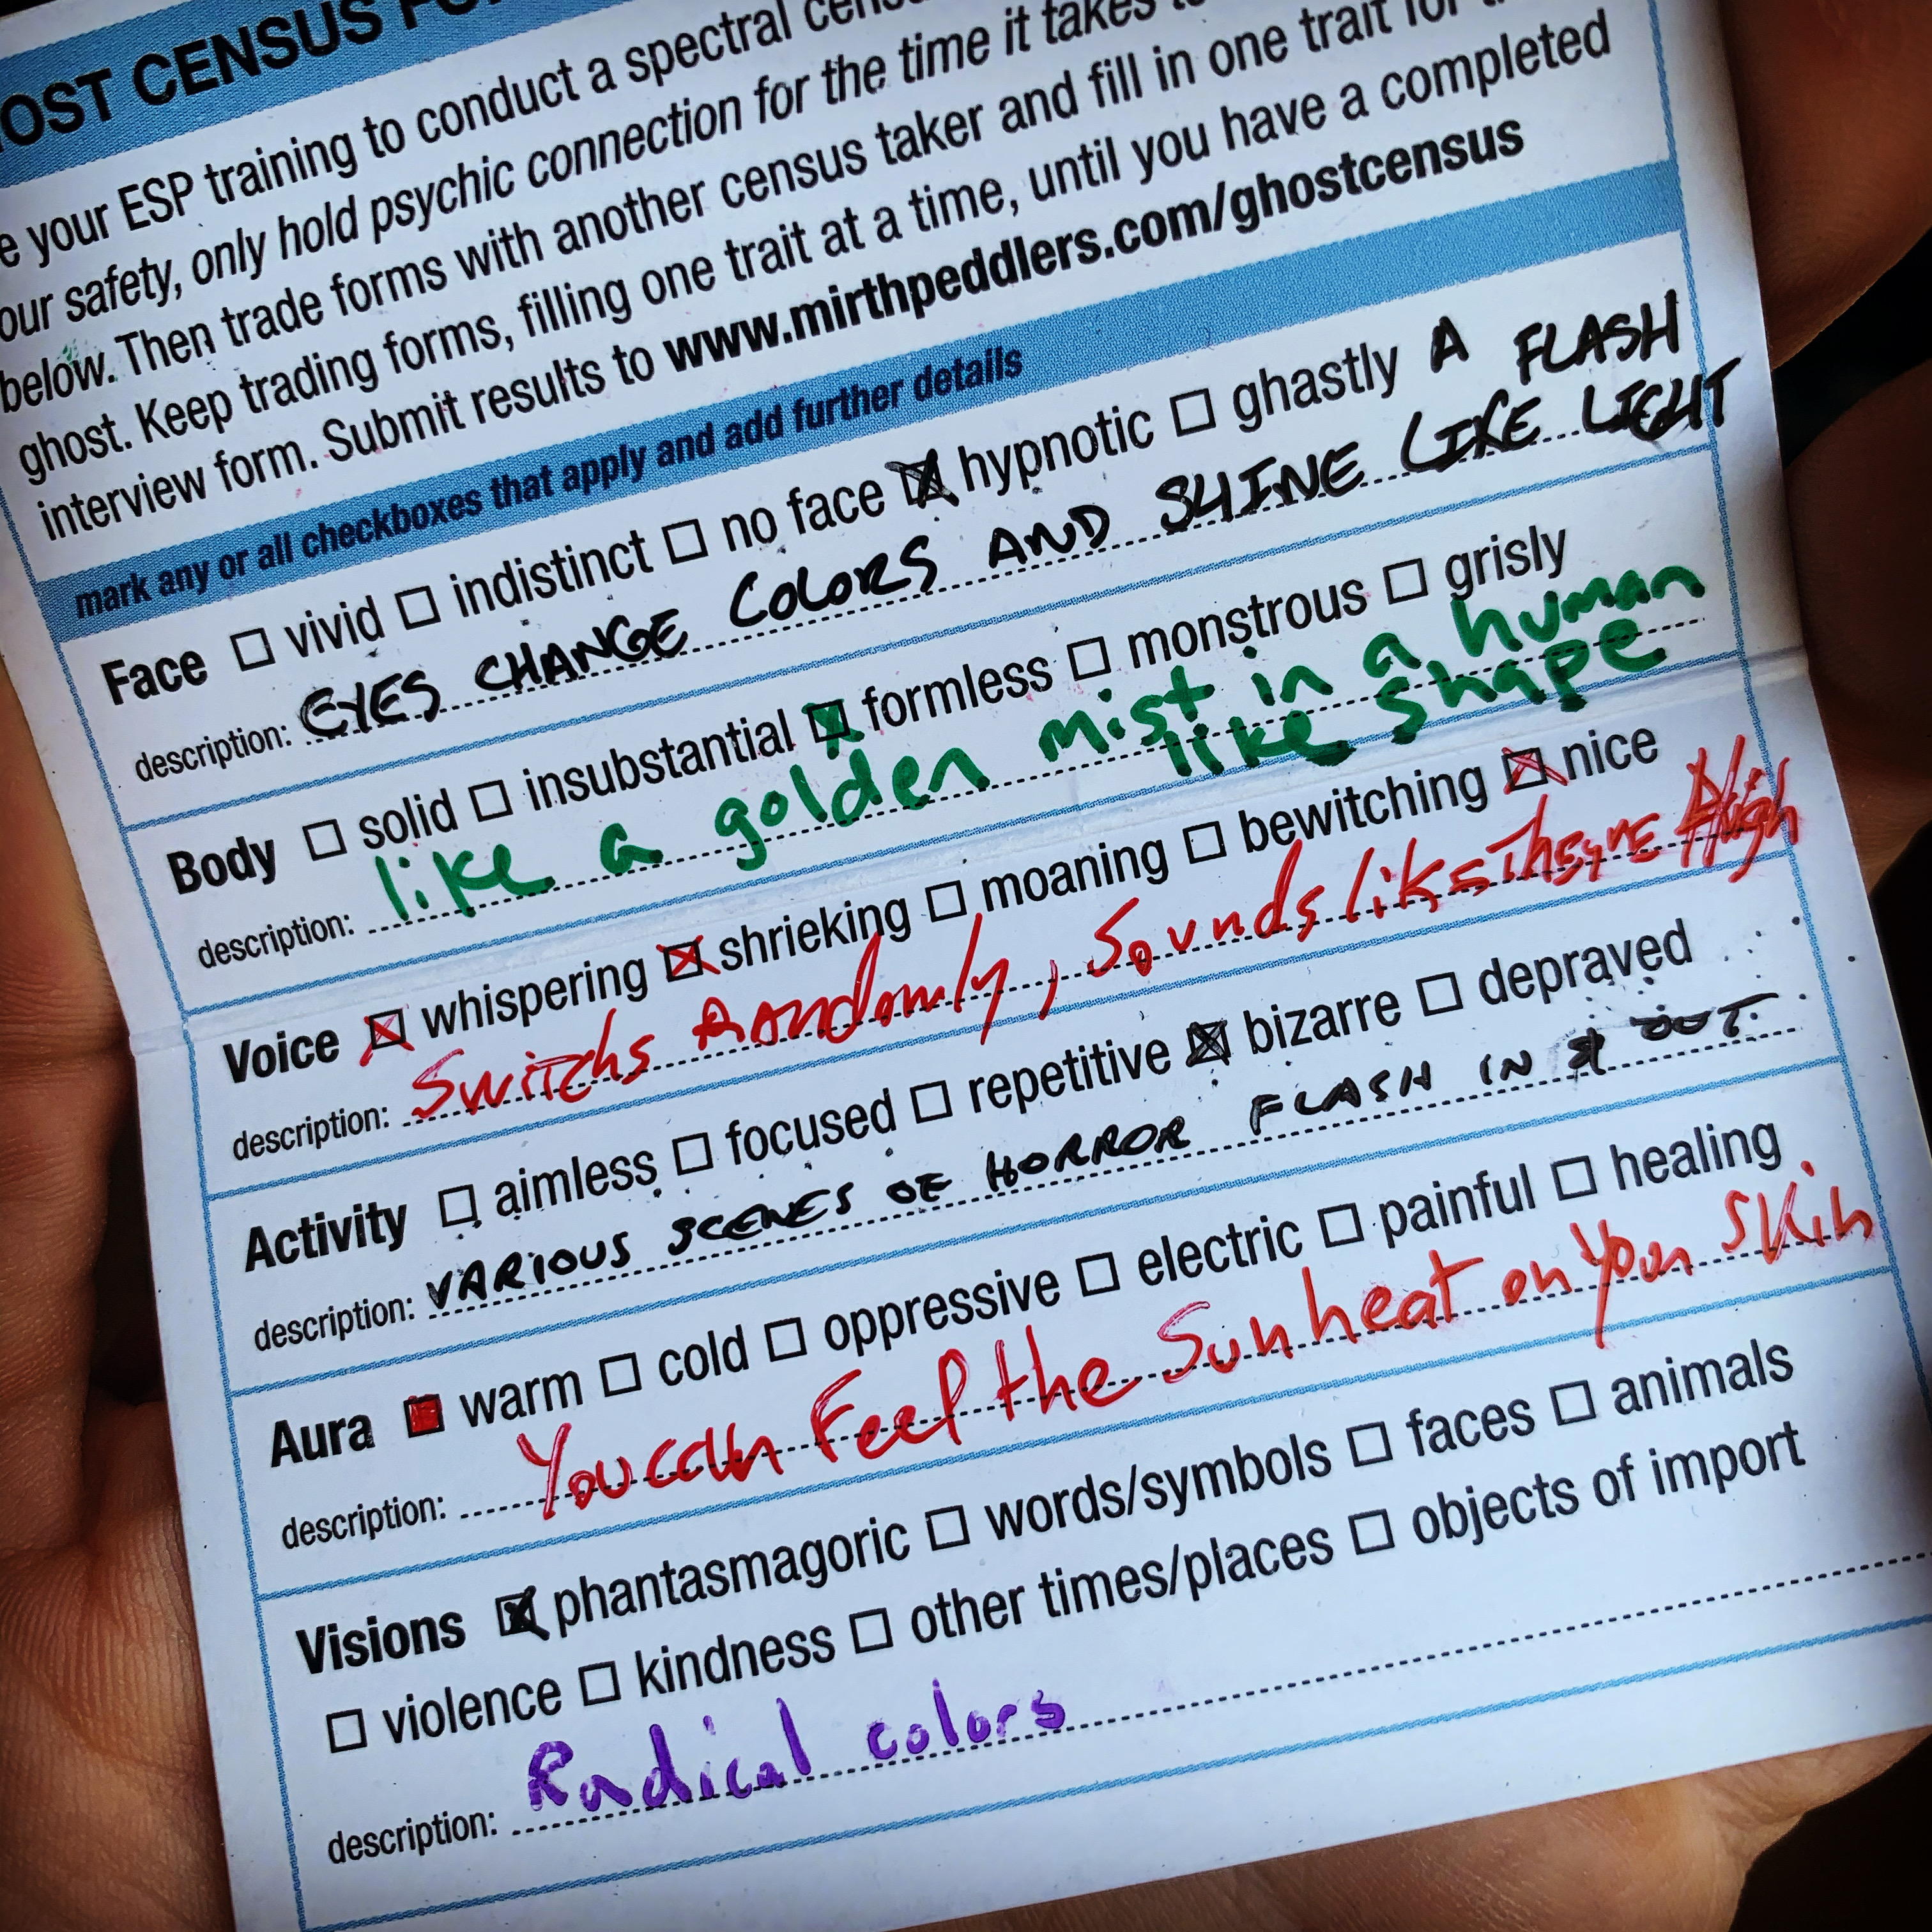 OST CENSUS FO
e your ESP training to conduct a spectral cen
our safety, only hold psychic connection for the time it takes
below. Then trade forms with another census taker and fill in one trait for
ghost. Keep trading forms, filling one trait at a time, until you have a completed
interview form. Submit results to www.mirthpeddlers.com/ghostcensus
mark any or all checkboxes that apply and add further details
Face ☐ vivid ☐ indistinct ☐ no face ☒ hypnotic ☐ ghastly A FLASH
description: EYES CHANGE COLORS AND SHINE LIKE LIGHT
Body ☐ solid ☐ insubstantial ☒ formless ☐ monstrous ☐ grisly
description: like a golden mist in a human
like shape
Voice ☒ whispering ☒ shrieking ☐ moaning ☐ bewitching ☒ nice
description: Switchs Randomly, Sounds like Theyre High
Activity ☐ aimless ☐ focused ☐ repetitive ☒ bizarre ☐ depraved
description: VARIOUS SCENES OF HORROR FLASH IN & OUT.
Aura ☒ warm ☐ cold ☐ oppressive ☐ electric ☐ painful ☐ healing
description: You can Feel the Sun heat on your Skin
Visions ☒ phantasmagoric ☐ words/symbols ☐ faces ☐ animals
☐ violence ☐ kindness ☐ other times/places ☐ objects of import
description: Radical colors